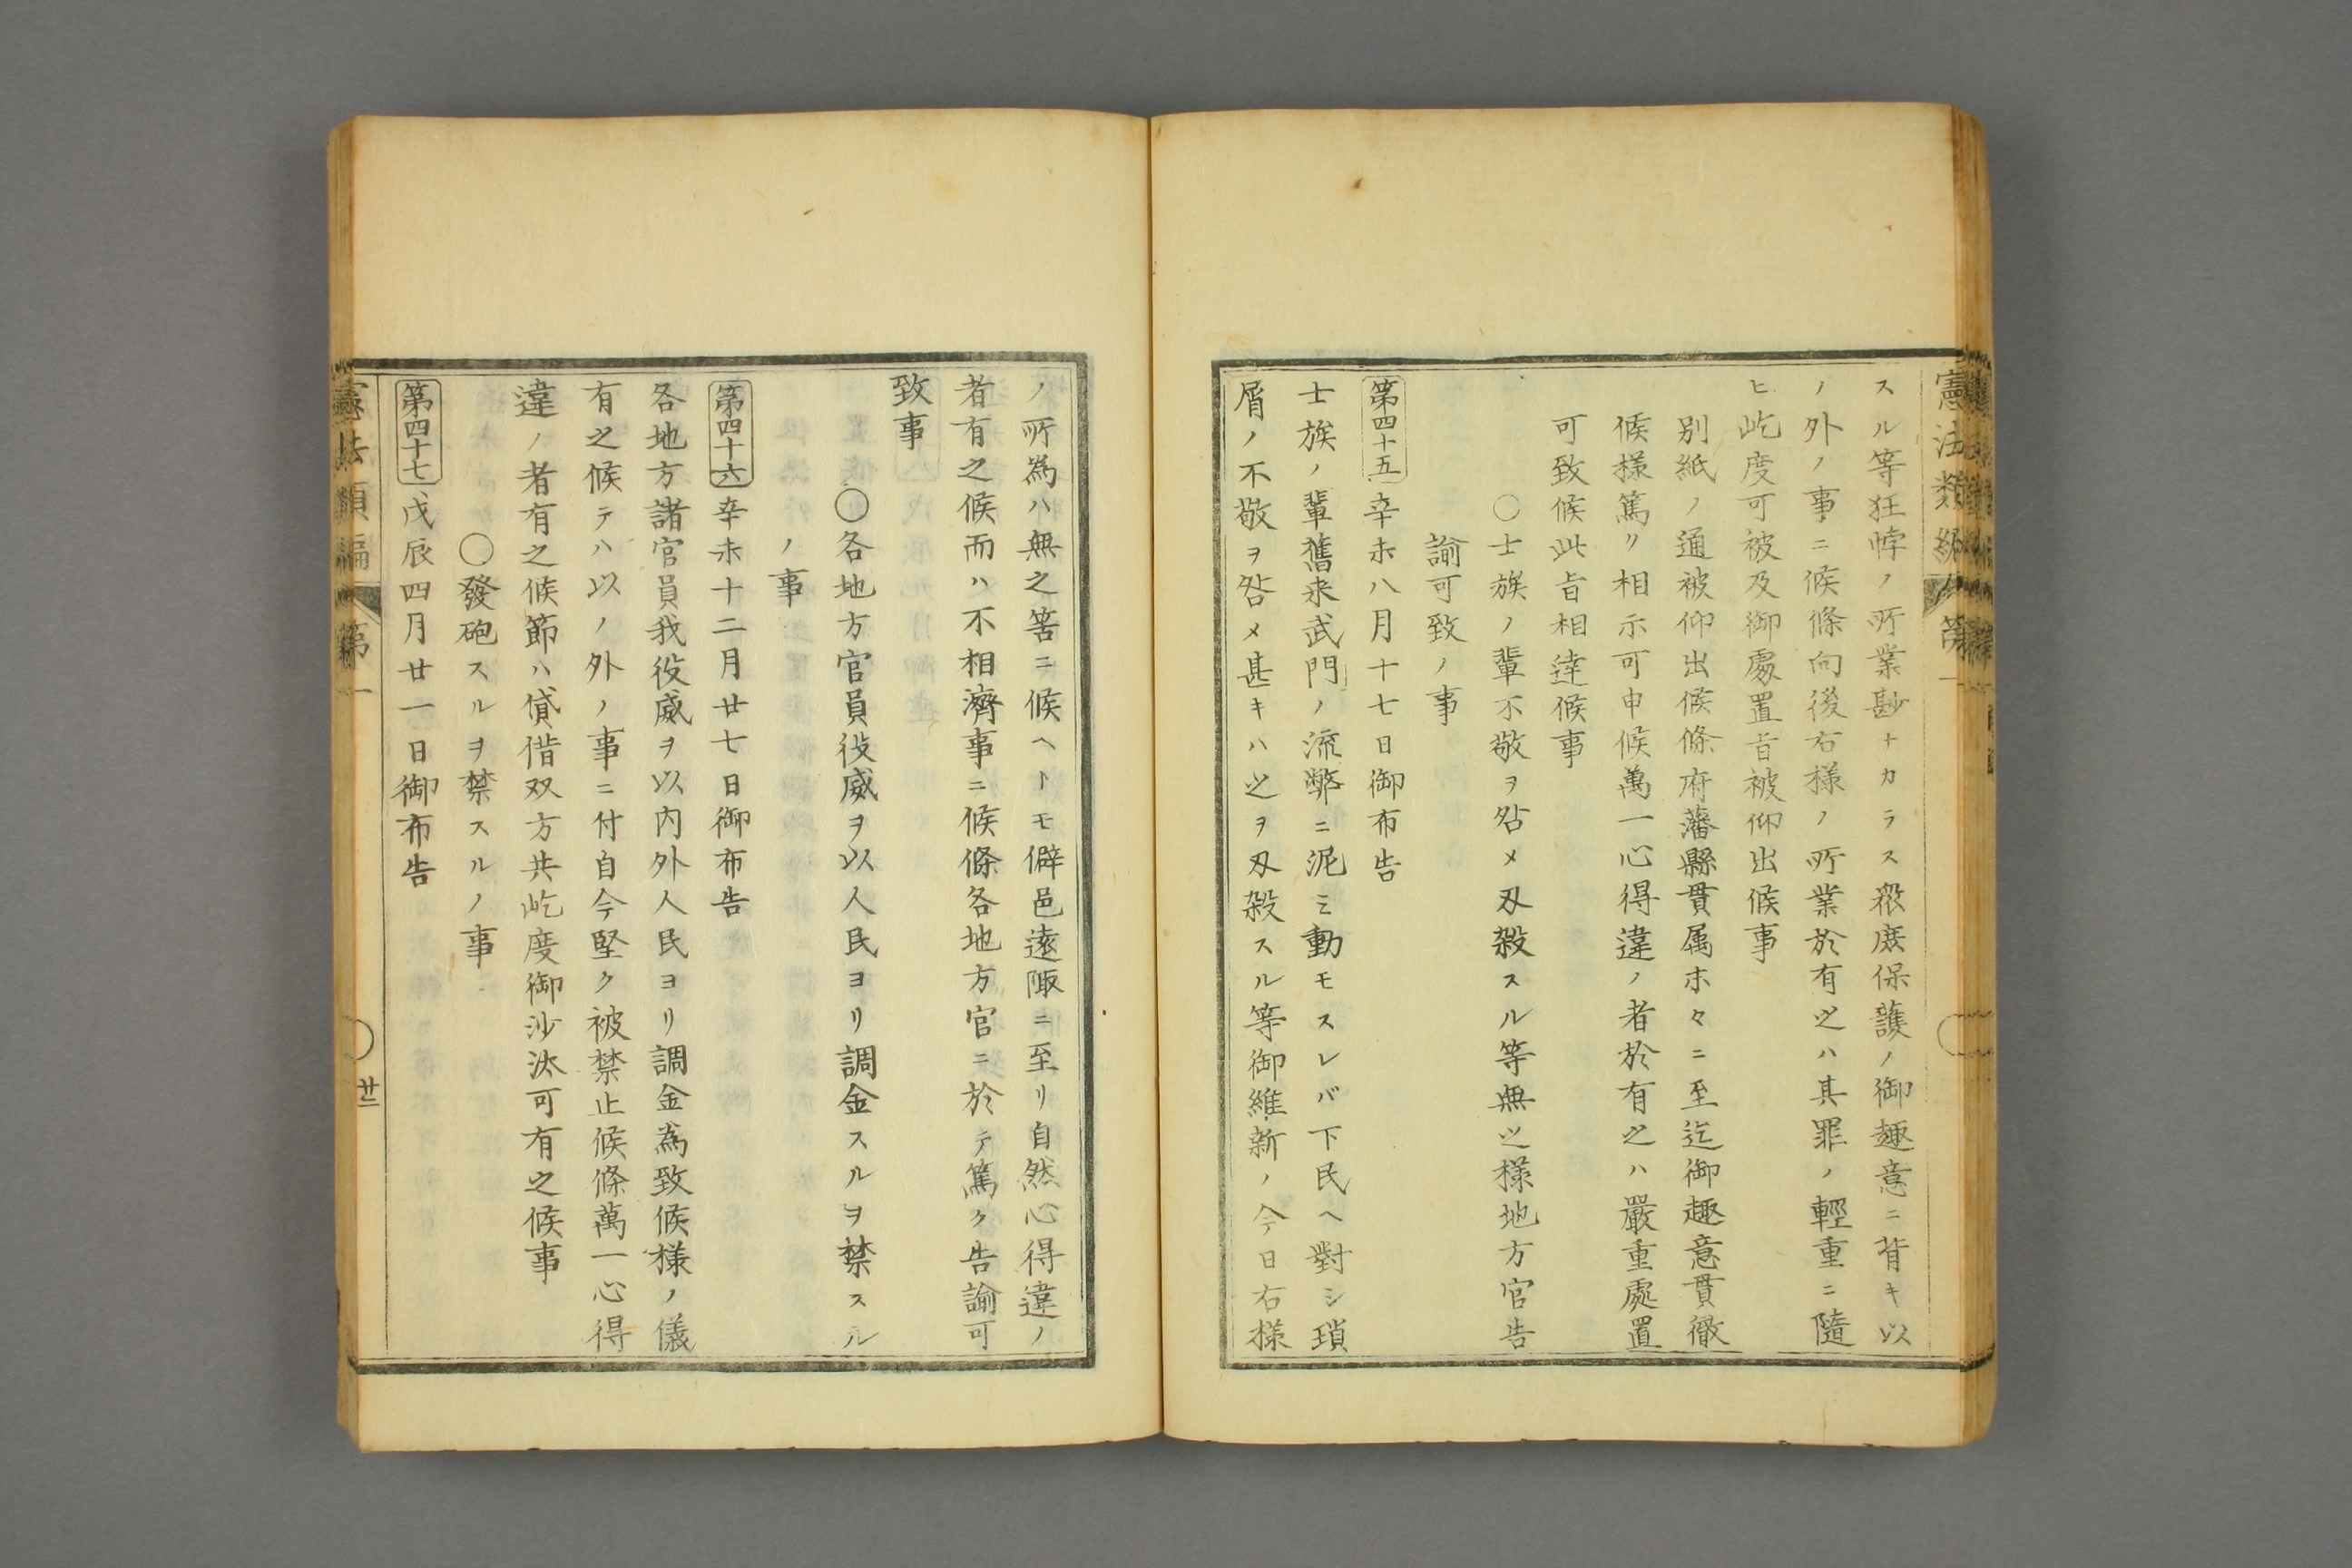 憲法類編 第一
スル等狂悖ノ所業尠ナカラス衆庶保護ノ御趣意ニ背キ以
ノ外ノ事ニ候條向後右様ノ所業於有之ハ其罪ノ輕重ニ隨
ヒ屹度可被及御處置旨被仰出候事
別紙ノ通被仰出候條府藩縣貫属末々ニ至迄御趣意貫徹
候様篤リ相示可申候萬一心得違ノ者於有之ハ嚴重處置
可致候此旨相達候事
○士族ノ輩不敬ヲ咎メ刄殺スル等無之様地方官告
諭可致ノ事
第四十五 辛未八月十七日御布告
士族ノ輩舊来武門ノ流弊ニ泥ミ動モスレバ下民ヘ對シ瑣
屑ノ不敬ヲ咎メ甚キハ之ヲ刄殺スル等御維新ノ今日右様
ノ所為ハ無之筈ニ候ヘトモ僻邑遠陬ニ至リ自然心得違ノ
者有之候而ハ不相濟事ニ候條各地方官ニ於テ篤ク告諭可
致事
○各地方官員役威ヲ以人民ヨリ調金スルヲ禁スル
ノ事
第四十六 辛未十二月廿七日御布告
各地方諸官員我役威ヲ以内外人民ヨリ調金為致候様ノ儀
有之候テハ以ノ外ノ事ニ付自今堅ク被禁止候條萬一心得
違ノ者有之候節ハ貸借双方共屹度御沙汰可有之候事
○發砲スルヲ禁スルノ事
第四十七 戊辰四月廿一日御布告
憲法類編 第一 廿二